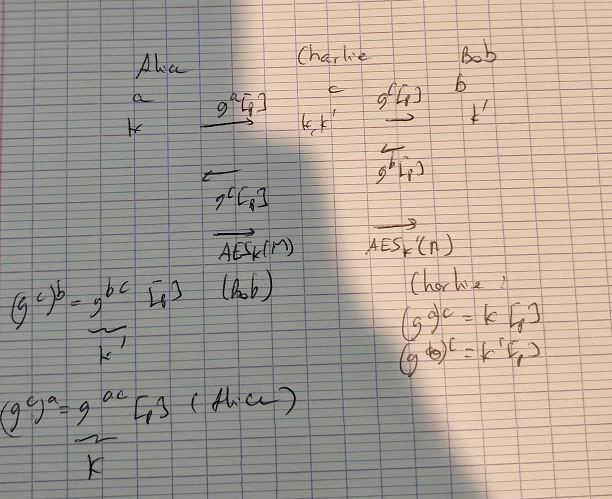 Alice Charlie Bob
a c b
k g^a[p] k,k' g^c[p] k'
g^b[p]
g^c[p]
AES_k(M) AES_k'(M)
(g^c)^b = g^bc [p] (Bob) Charlie :
k' (g^a)^c = k [p]
(g^b)^c = k' [p]
(g^c)^a = g^ac [p] (Alice)
K